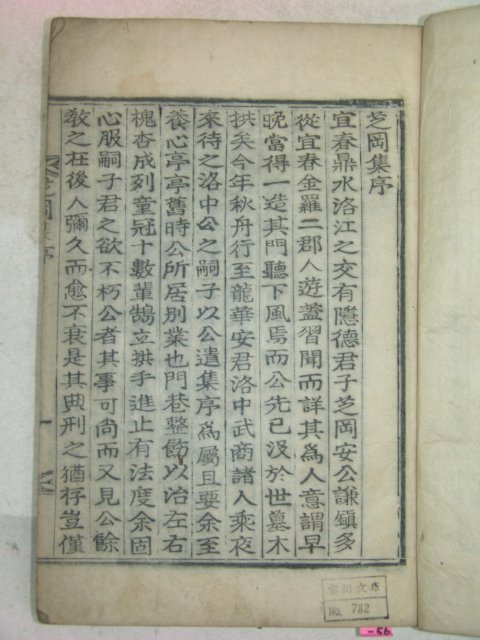 芝岡集序
宜春鼎水洛江之交有隱德君子芝岡安公謙鎭多
從宜春金羅二郡人遊蓋習聞而詳其爲人意謂早
晩當得一造其門聽下風焉而公先已沒於世墓木
拱矣今年秋舟行至龍華安君洛中武商諸人乘夜
來待之洛中公之嗣子以公遺集序爲屬且要余至
養心亭亭舊時公所居別業也門巷整飭以治左右
槐杏成列童冠十數輩鵠立拱手進止有法度余固
心服嗣子君之欲不朽公者其事可尙而又見公餘
敎之在後人彌久而愈不衰是其典刑之猶存豈僅
芝岡集序
一
文庫
No. 782
-56